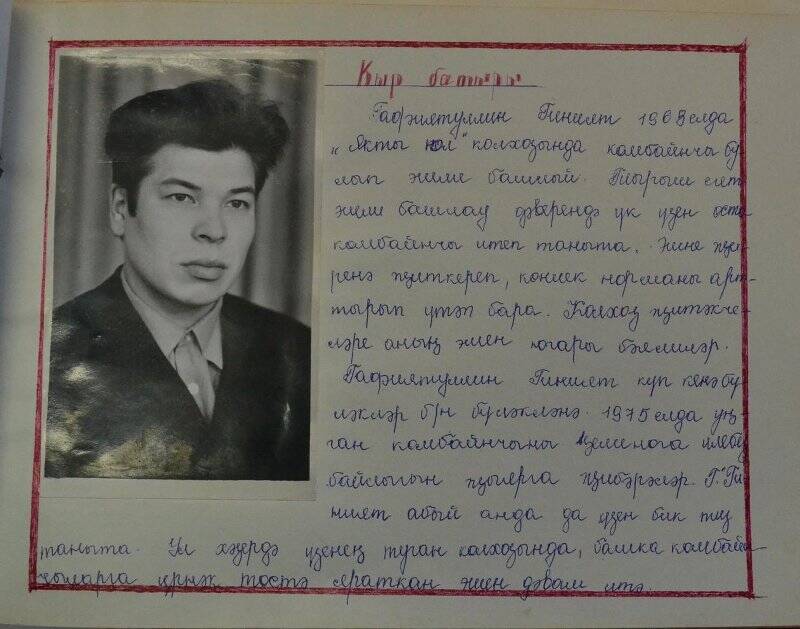 Кыр батыры
Гафиятуллин Гиният 1968 елда
„Якты юл" колхозында комбайнчы бу
лып эшли башлый. Тырыш егет
эшли башлау дәверендә үк үзен оста
комбайнчы итеп таныта. Эшне җи-
ренә җиткереп, көнлек норманы арт-
тырып үтәп бара. Колхоз җитәкче-
ләре аның эшен югары бәялиләр.
Гафиятуллин Гиният күп кенә бү
ләкләр б/н бүләкләнә. 1975 елда уң-
ган комбайнчыны Целинога илебез
байлыгын җыярга җибәрәләр. Г. Ги
ният абый анда да үзен бик тиз
таныта. Ул хәзердә үзенең туган колхозында, башка комбайн
чыларга үрнәк төстә яраткан эшен дәвам итә.